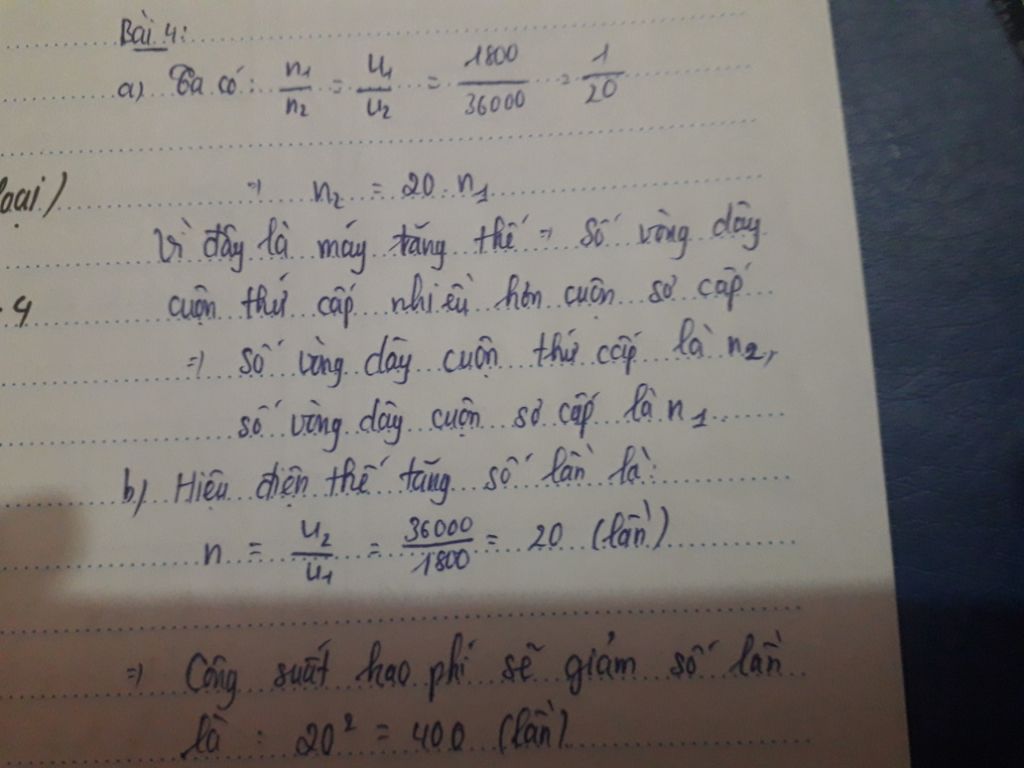 Bài 4:
a) Ta có: n1/n2 = U1/U2 = 1800/36000 = 1/20
oại)
=> n2 = 20. n1
Vì đây là máy tăng thế => số vòng dây
4
cuộn thứ cấp nhiều hơn cuộn sơ cấp
=> số vòng dây cuộn thứ cấp là n2,
số vòng dây cuộn sơ cấp là n1.
b) Hiệu điện thế tăng số lần là:
n = U2/U1 = 36000/1800 = 20 (lần)
=> Công suất hao phí sẽ giảm số lần
là: 20² = 400 (lần)